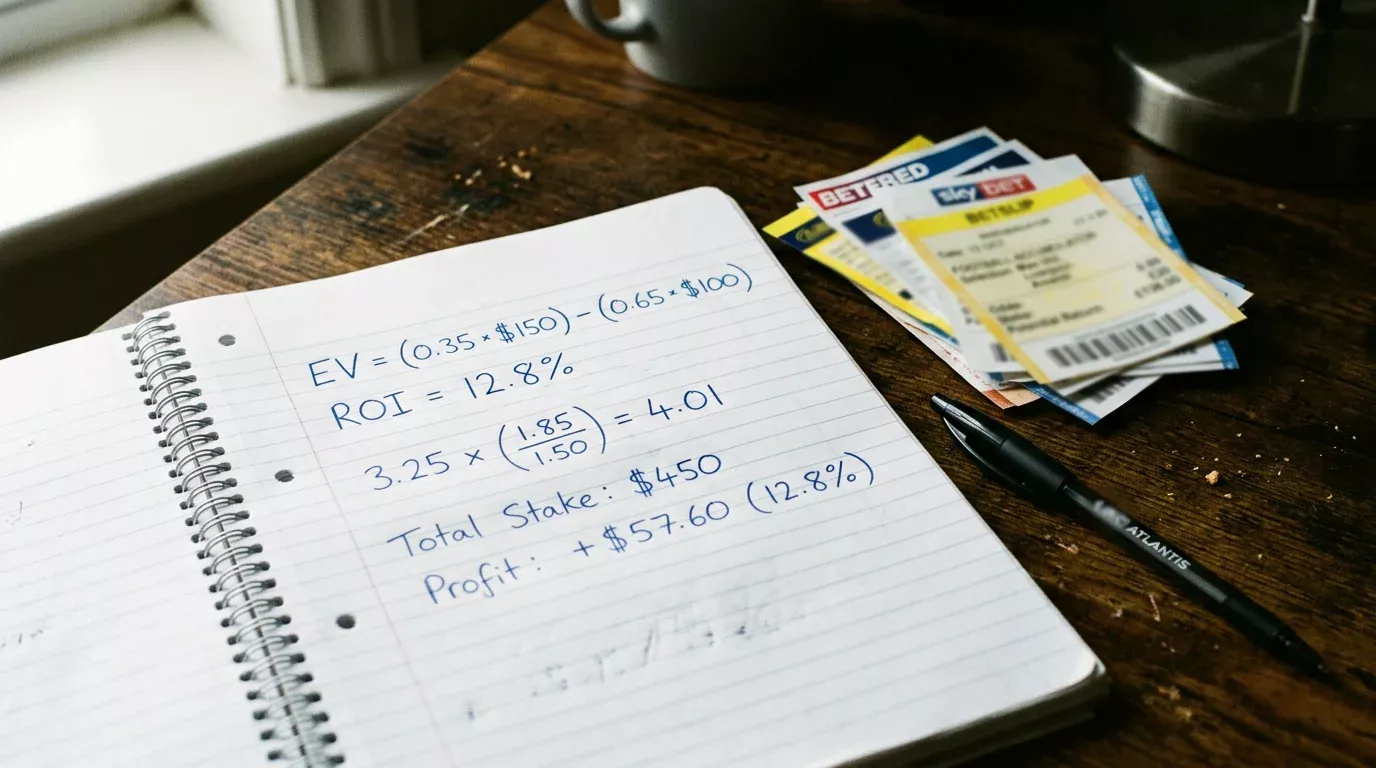 EV = (0.35 * $150) - (0.65 * $100)
ROI = 12.8%
3.25 × (1.85/1.50) = 4.01
Total Stake: $450
Profit: + $57.60 (12.8%)
BETFRED
sky BET
BETSLIP
FOOTBALL ACCUMULATOR
Potential Return
ATLANTIS